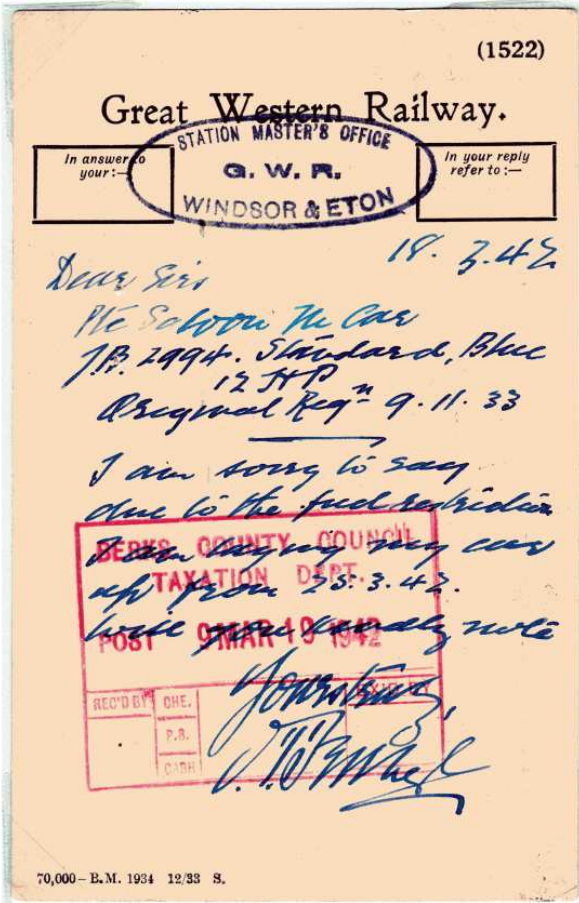 (1522)
Great Western Railway.
STATION MASTER'S OFFICE
G. W. R.
WINDSOR & ETON
In answer to
your :—
In your reply
refer to :—
18. 3.42
Dear Sirs
Pte Saloon M Car
J.B. 2994. Standard, Blue
12 HP
Original Regn 9.11.33
I am sorry to say
due to the fuel restriction
I am laying my car
up from 25.3.42.
Will you kindly note
Yours truly,
BERKS COUNTY COUNCIL
TAXATION DEPT.
POST 9 MAR 19 1942
REC'D BY
CHE.
P.B.
CASH
70,000 – B.M. 1934 12/33 S.